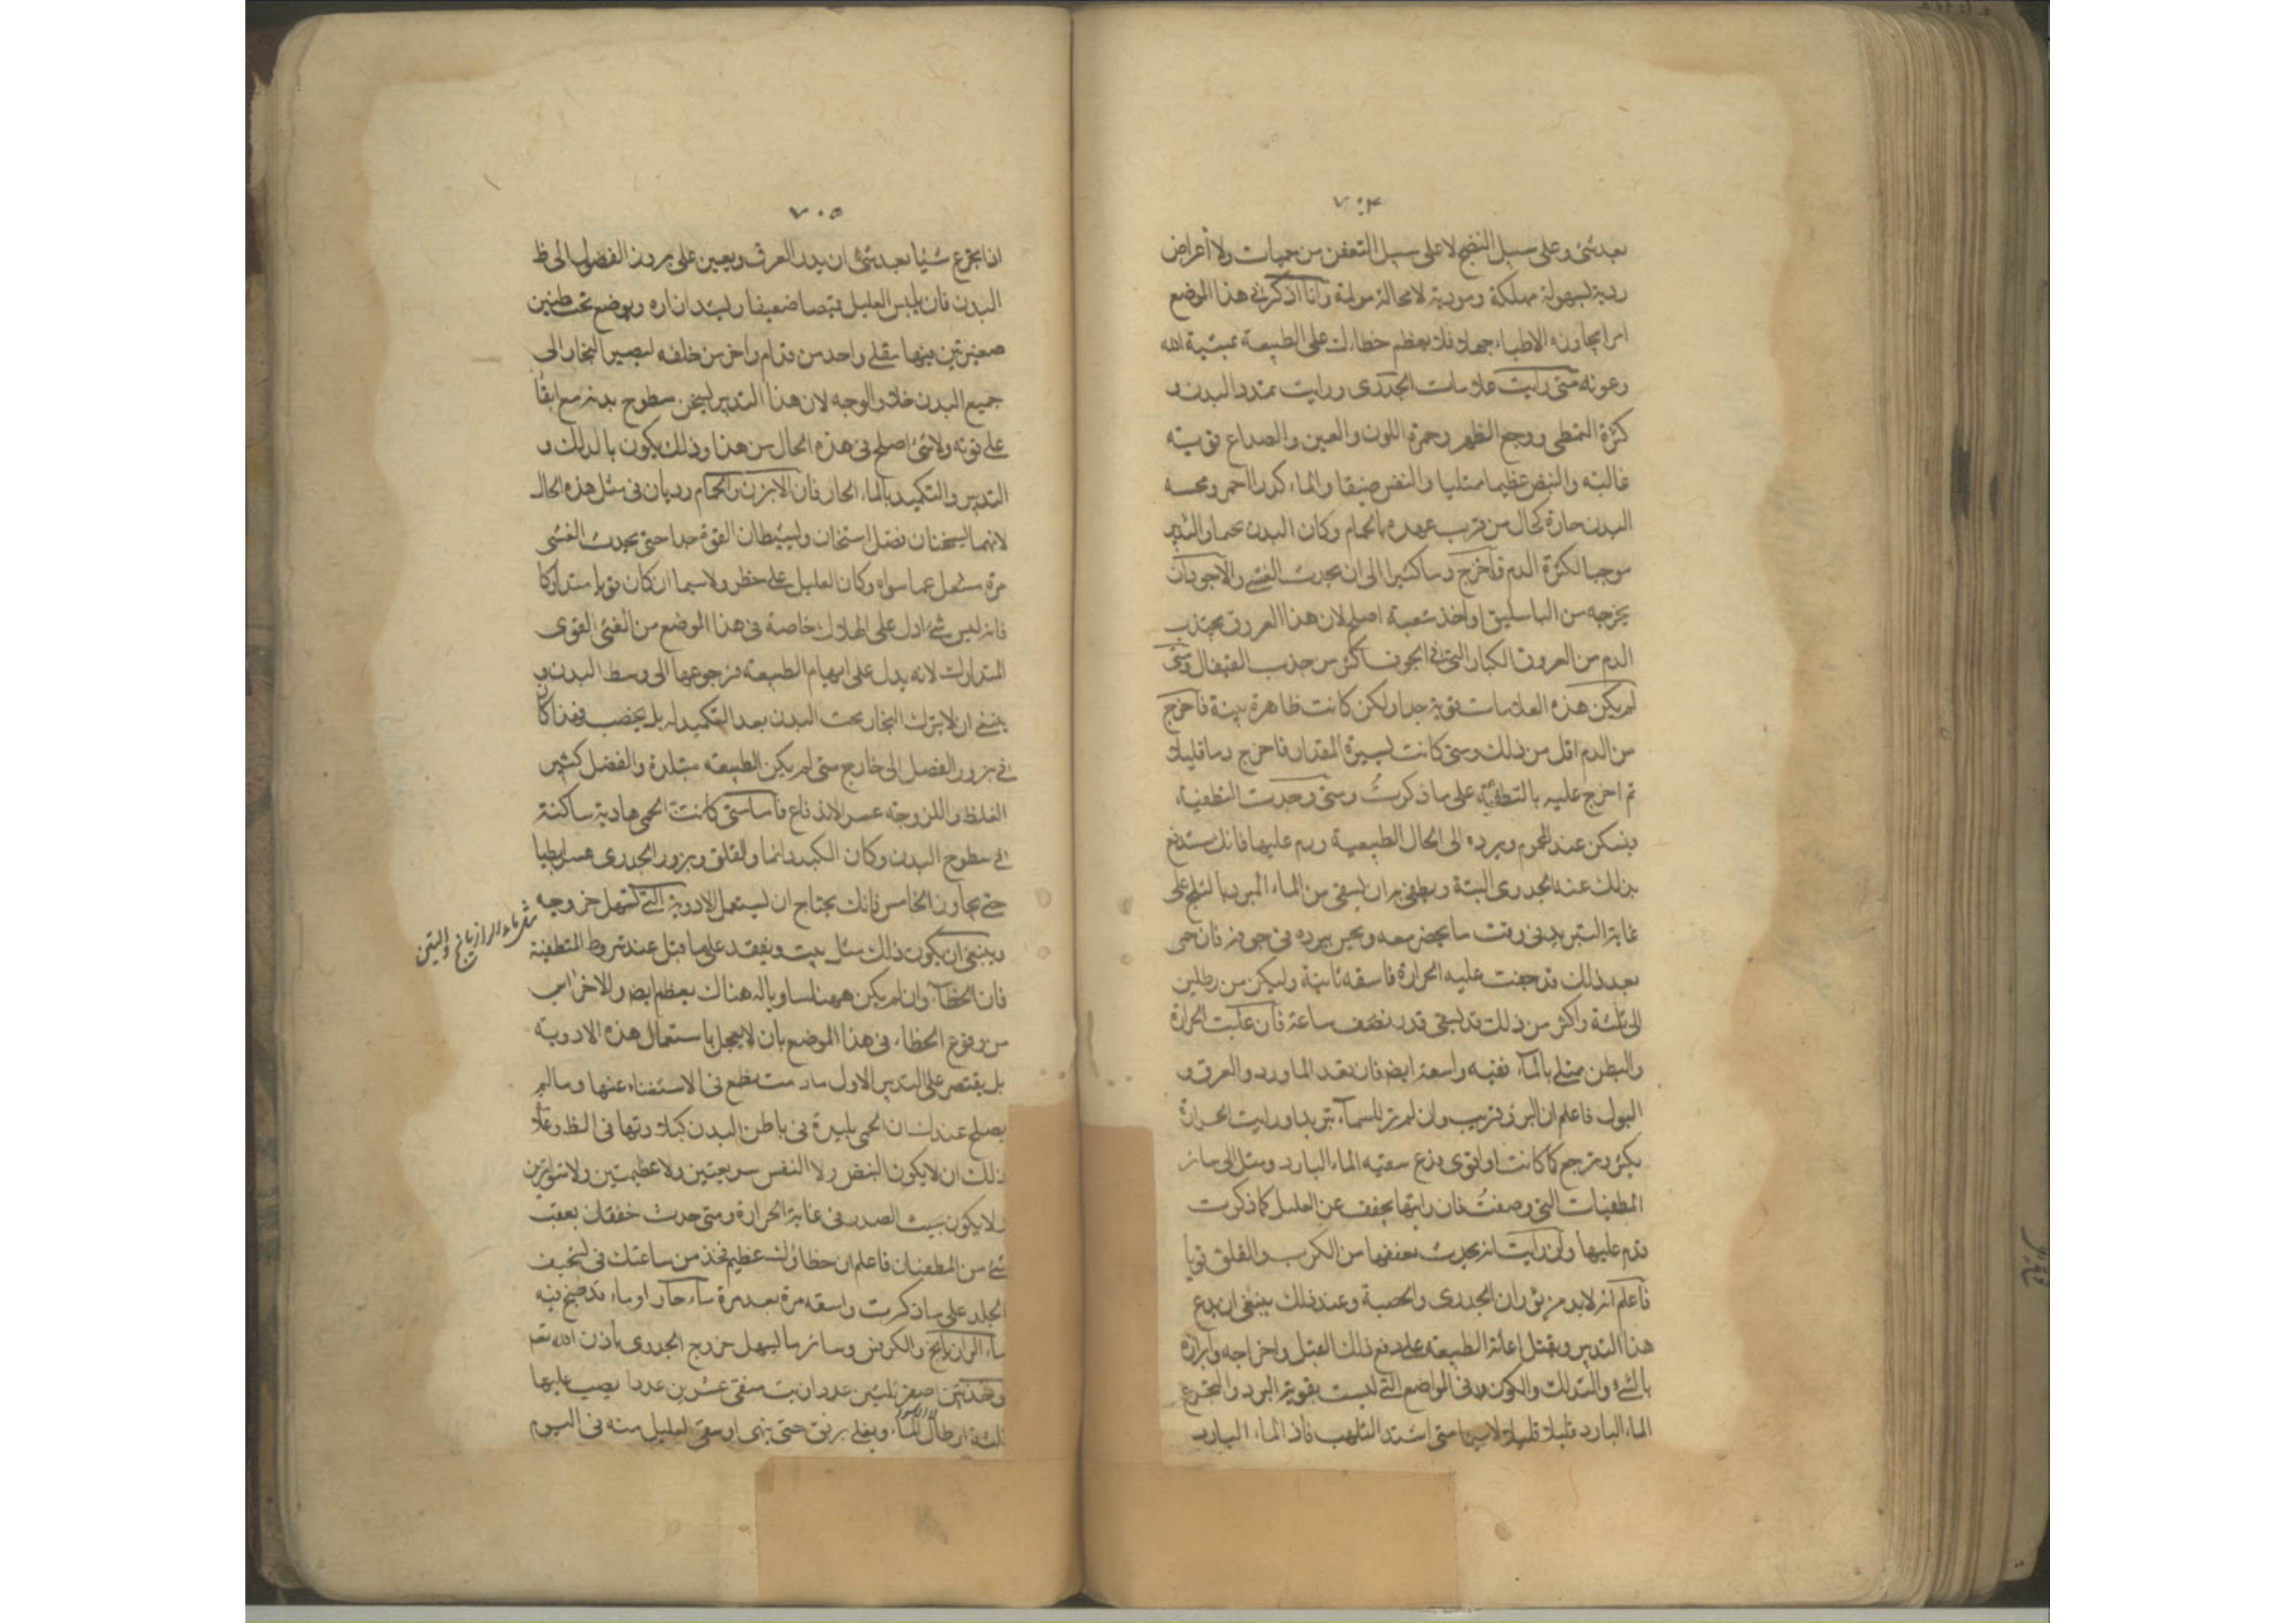 ٧٠۴
بعد شئ وعلى سبيل النضج لا على سبيل التعفن من حميات ولا أعراض
ردية لسهولة مهلكة ومودية لا محالة مولمة وانا اذكر فى هذا الموضع
امرا يجاوزه الاطباء جهلا فلا يعظم خطاءك على الطبيعة بمشية الله
وعونه متى رايت علامات الجدرى ورايت تمدد البدن و
كثرة التمطى ووجع الظهر وحمرة اللون والعين والصداع قوية
غالبة والنبض عظيما ممتليا والنفس ضيقا والماء كدرا احمر ومجسه
البدن حارة كحال من قريب عهده بالحمام وكان البدن لحما والتدبير
موجبا لكثرة الدم فاخرج دما كثيرا الى ان يحدث الغشى والاجود ان
يخرجه من الباسليق او احد شعبه اصلح لان هذا العروق يجتذب
الدم من العروق الكبار التى فى الجوف اكثر من جذب القيفال ومتى
لم يكن هذه العلامات قوية جدا ولكن كانت ظاهرة بينة فاخرج
من الدم اقل من ذلك ومتى كانت يسيرة المقدار فاخرج دما قليلا
ثم اخرج عليه بالتطفئة على ما ذكرت ومتى وجدت التطفية
ويسكن عنه المحموم ويرده الى الحال الطبيعية ودم عليها فانك ستدفع
بذلك عنه الجدرى البتة ويطفى بر ان يسقى من الماء المبرد بالثلج على
غاية التبريد فى وقت ما يحضر معه ويحس ببرده فى جوفه فان حمى
بعد ذلك قد رجعت عليه الحرارة فاسقه ثانية وليكن من رطلين
الى ثلثة واكثر من ذلك قد يسقى قدر نصف ساعة فان غلبت الحرارة
والبطن ممتلى بالماء فقيه واسعة ايضا فان نفد الماء ورد والعرق و
البول فاعلم ان البرؤ قريب وان لم تر للماء تبريدا ورايت الحرارة
يكثر وترجع كما كانت او اقوى فدع سقيه الماء البارد ومل الى ساير
المطفيات التى وصفت فان رايتها يخفف عن العليل كما ذكرت
قدم عليها وان رايت انه يحدث بعقبها من الكرب والقلق قويا
فاعلم انه لابد من ثوران الجدرى والحصبة وعند ذلك ينبغى ان يدع
هذا التدبير ويقبل اعانة الطبيعة على دفع ذلك الفضل واخراجه وابرازه
بالشئ والتدلك والكون فى المواضع التى ليست بقوية البرد والتجرع
الماء البارد قليلا قليلا لا سيما متى اشتد التلهب فاذ الماء البارد
٧٠۵
اذا تجرع شيئا بعد شئ ان يدر العرق ويعين على بروز الفضول الى ظ
البدن فان يلبس العليل قميصا ضعيفا وليشد ازاره ويوضع تحت طستين
صغيرتين فيهما يغلى واحد من قدام واخر من خلفه ليصير البخار الى
جميع البدن خلا الوجه لان هذا التدبير يسخن سطوح بدنه مع ابقاء
على قوته ولا شئ اصلح فى هذه الحال من هذا وذلك يكون بالدلك و
التدبير والتكميد بالماء الحار فان الابزن والحمام رديان فى مثل هذه الحال
لانهما يسخنان فضل اسخان ويسقطان القوة جدا حتى يحدث الغشى
مرة مشغل عما سواه وكان العليل على خطر ولا سيما ان كان قويا متداركا
فانه ليس شئ ادل على الهلاك خاصة فى هذا الموضع من الغشى القوى
المتدارك لانه يدل على انهزام الطبيعة ورجوعها الى وسط البدن و
ينبغى ان لا يترك البخار تحت البدن بعد التكميد له بل يخضب وهذا كان
فى بروز الفضل الى خارج متى لم يكن الطبيعة متبلدة والفضل كثير
الغلظ واللزوجة عسر الاندفاع فاما متى كانت الحمى هادية ساكنة
فى سطوح البدن وكان الكبد دائما والقلق وبروز الجدرى عسرا بطيا
حتى يجاوز الخامس فانك يحتاج ان يستعمل الادوية التى تسهل خروجه
مثل ماء الرازيانج والتين
وينبغى ان يكون ذلك وتفقد على ما قيل عند شروط المتطفية
فان الخطاء وان لم يكن ههنا مساويا له هناك يعظم ايضا والاحتراس
من وقوع الخطاء فى هذا الموضع بان لا يعجل باستعمال هذه الادوية
بل يقتصر على التدبير الاول ما دمت تطمع فى الاستغناء عنها وما لم
يصلح عندك ان الحمى يسيرة فى باطن البدن كبلادتها فى الظ وعلامة
ذلك ان لا يكون النبض ولا النفس سريعين ولا عظيمين ولا متواترين
ولا يكون الصدر فى غاية الحرارة ومتى حدث خفقان بعقب
شئ من المطفيات فاعلم ان خطاؤك عظيم فخذ من ساعتك فى تسخيف
الجلد على ما ذكرت واسقه مرة بعد مرة ماء حار او ماء قد طبخ فيه
ماء الرازيانج والكرفس وساير ما يسهل خروج الجدرى باذن الله تعه
وخذ تين اصفر ثلثين عددا زبيب منقى عشرين عددا يصب عليها
ثلثة ارطال الماء ويغلى برفق حتى يتهرى ويسقى العليل منه فى اليوم